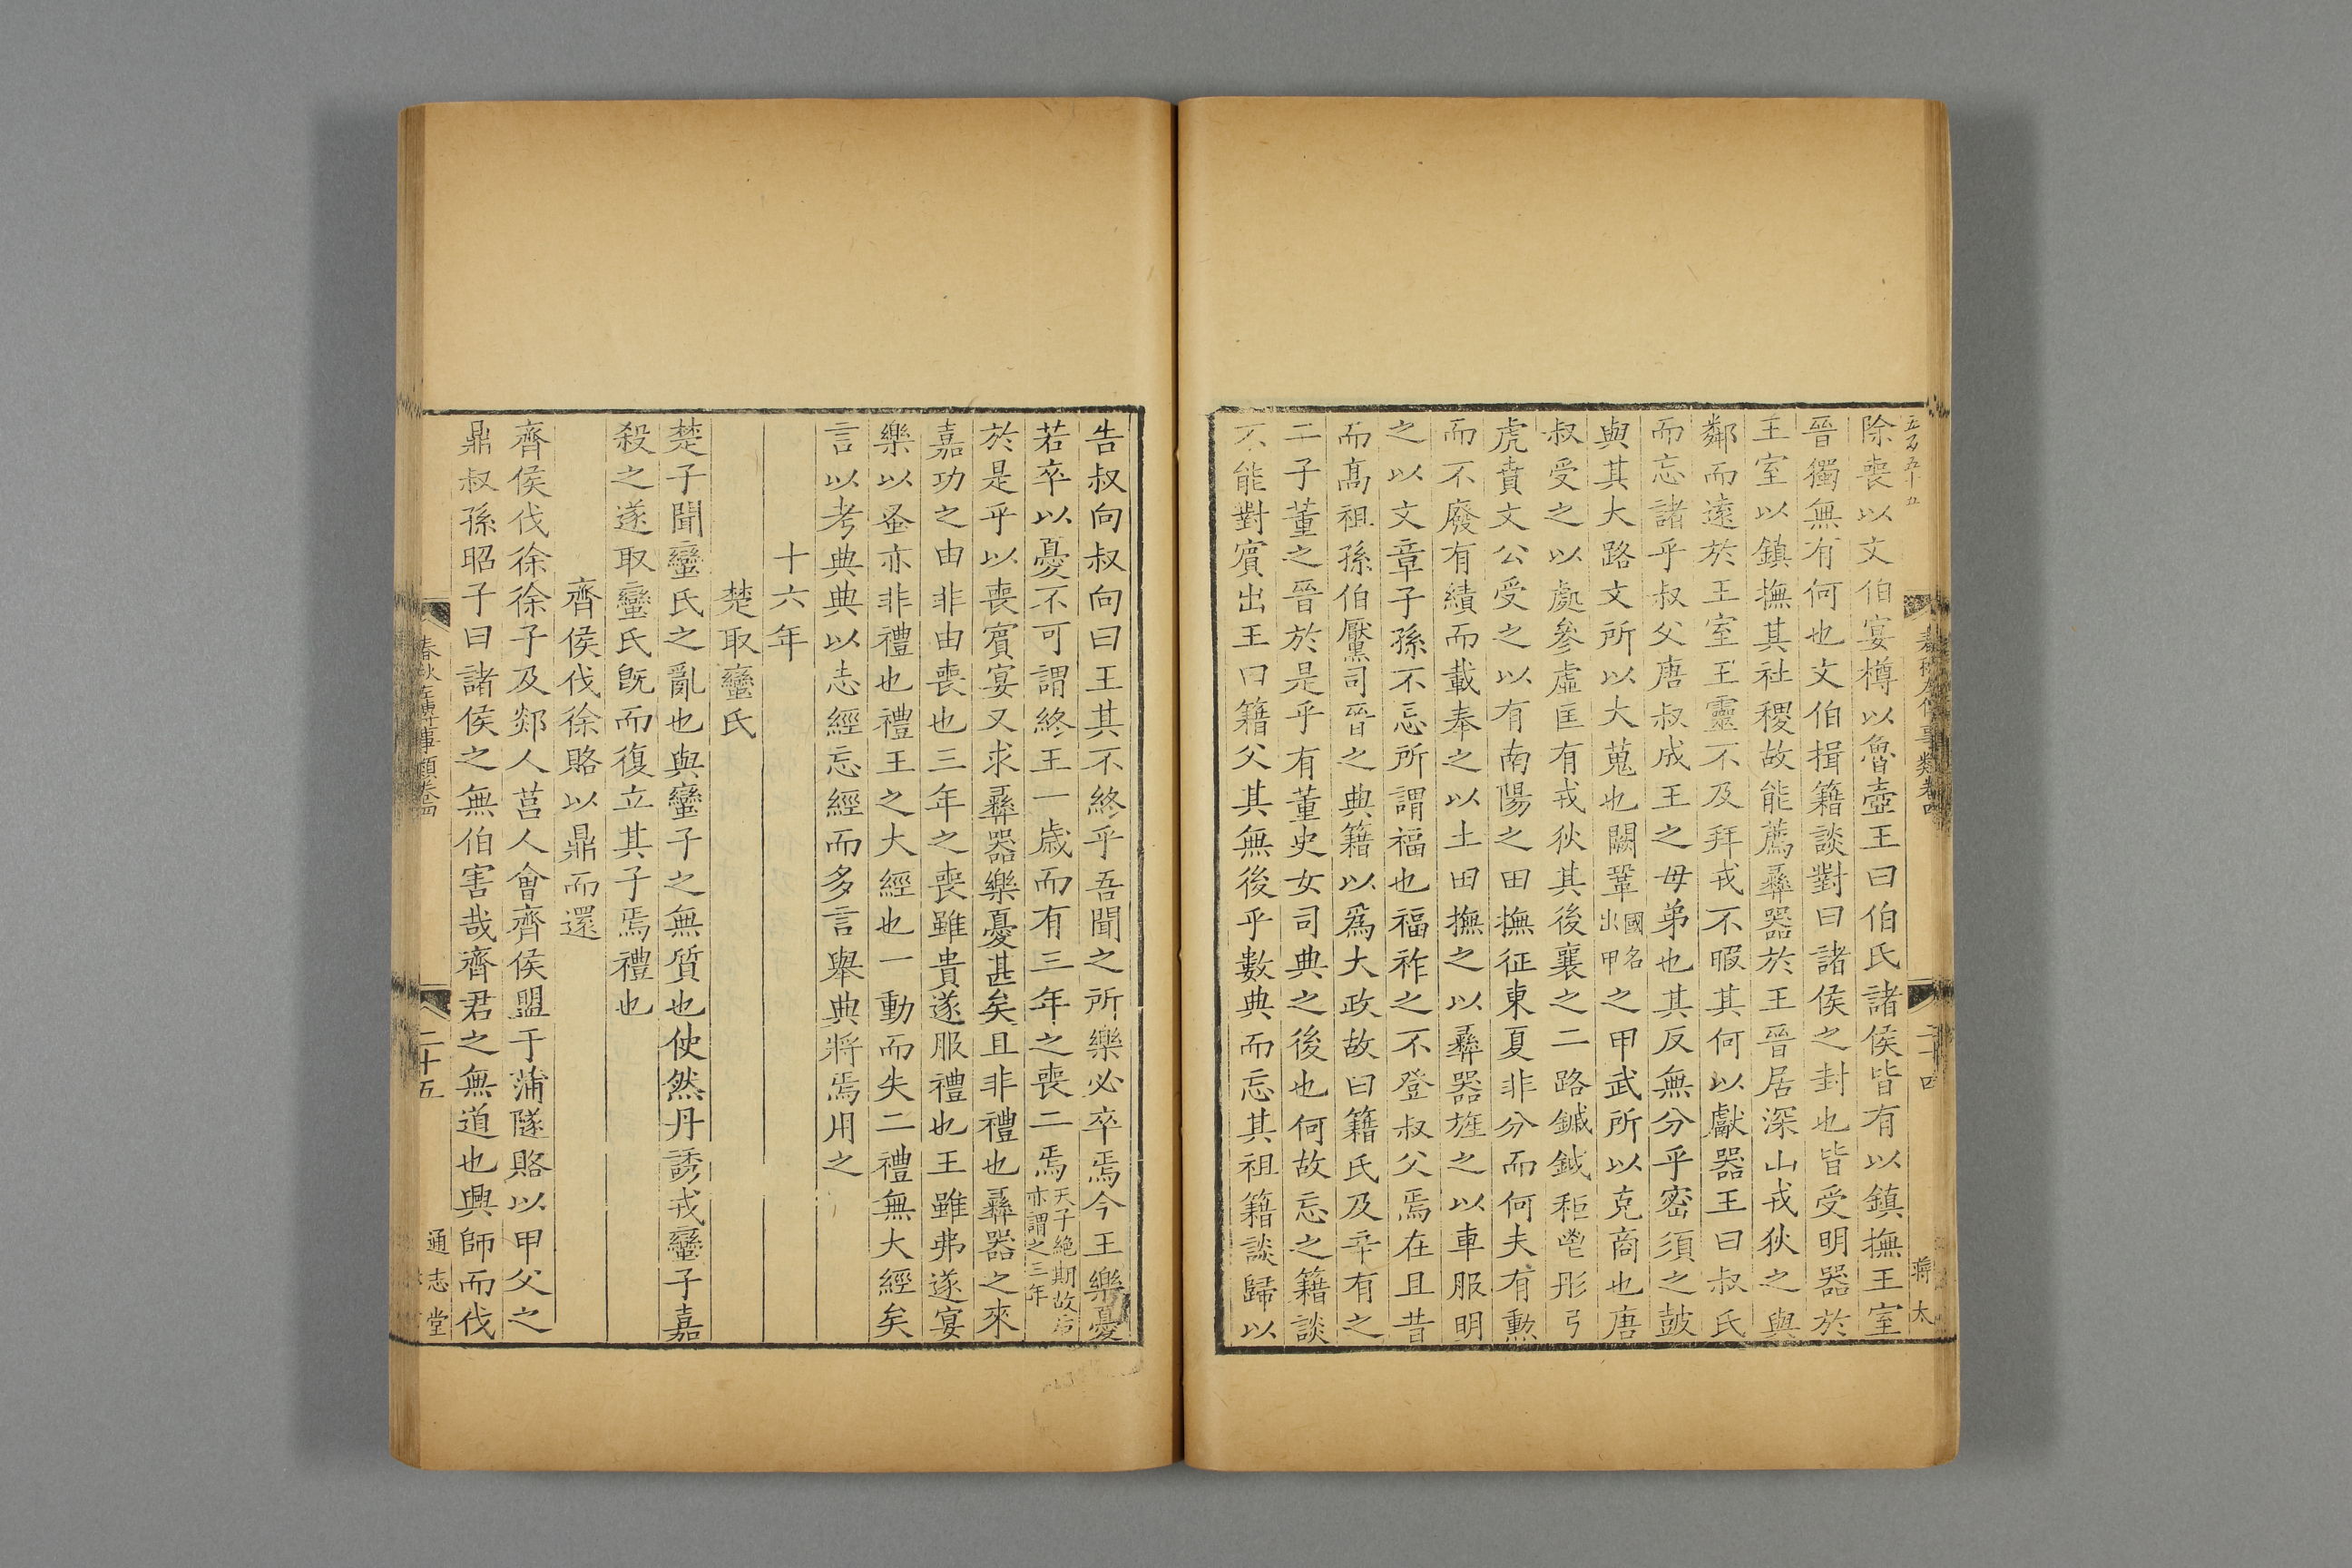 五百五十五
除喪以文伯宴樽以魯壺王曰伯氏諸侯皆有以鎮撫王室
晉獨無有何也文伯揖籍談對曰諸侯之封也皆受明器於
王室以鎮撫其社稷故能薦彞器於王晉居深山戎狄之與
鄰而遠於王室王靈不及拜戎不暇其何以獻器王曰叔氏
而忘諸乎叔父唐叔成王之母弟也其反無分乎密須之鼓
與其大路文所以大蒐也闕鞏國名出甲之甲武所以克商也唐
叔受之以處參虛匡有戎狄其後襄之二路鏚鉞秬鬯彤弓
虎賁文公受之以有南陽之田撫征東夏非分而何夫有勲
而不廢有績而載奉之以土田撫之以彞器旌之以車服明
之以文章子孫不忘所謂福也福祚之不登叔父焉在且昔
而高祖孫伯黶司晉之典籍以爲大政故曰籍氏及辛有之
二子董之晉於是乎有董史女司典之後也何故忘之籍談
不能對賓出王曰籍父其無後乎數典而忘其祖籍談歸以
春秋左傳事類卷四
二十四
蔣太
告叔向叔向曰王其不終乎吾聞之所樂必卒焉今王樂憂
若卒以憂不可謂終王一歲而有三年之喪二焉天子絶期故后亦謂之三年
於是乎以喪賓宴又求彞器樂憂甚矣且非禮也彞器之來
嘉功之由非由喪也三年之喪雖貴遂服禮也王雖弗遂宴
樂以蚤亦非禮也禮王之大經也一動而失二禮無大經矣
言以考典典以志經忘經而多言舉典將焉用之
十六年
楚取蠻氏
楚子聞蠻氏之亂也與蠻子之無質也使然丹誘戎蠻子嘉
殺之遂取蠻氏旣而復立其子焉禮也
齊侯伐徐賂以鼎而還
齊侯伐徐徐子及郯人莒人會齊侯盟于蒲隧賂以甲父之
鼎叔孫昭子曰諸侯之無伯害哉齊君之無道也興師而伐
春秋左傳事類卷四
二十五
通志堂